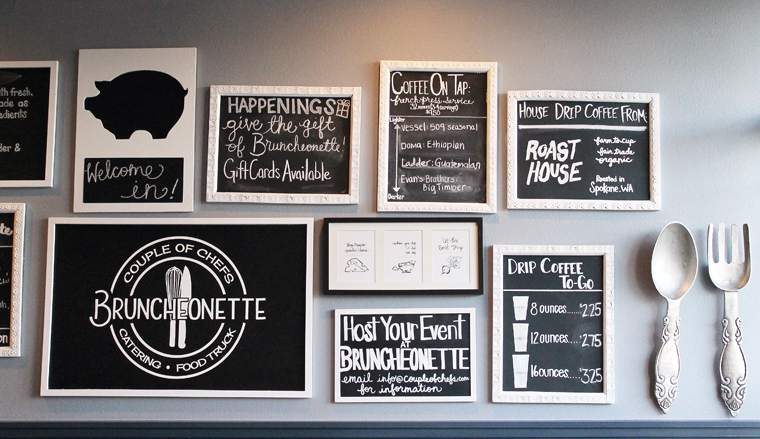 with fresh,
made as
Welcome
in!
HAPPENINGS
give the gift
of Bruncheonette!
Gift Cards Available
COFFEE ON TAP:
french press service
Lighter
Vessel: 509 seasonal
Doma: Ethiopian
Ladder: Guatemalan
Evan's Brothers:
Big Timber
Darker
HOUSE DRIP COFFEE FROM:
ROAST
HOUSE
farm to cup
fair trade
organic
Roasted in
Spokane, WA
COUPLE OF CHEFS
BRUNCHEONETTE
CATERING • FOOD TRUCK
HOST YOUR EVENT
AT
BRUNCHEONETTE
email info@coupleofchefs.com
for information
DRIP COFFEE
TO-GO
8 ounces......$2.25
12 ounces.....$2.75
16 ounces.....$3.25